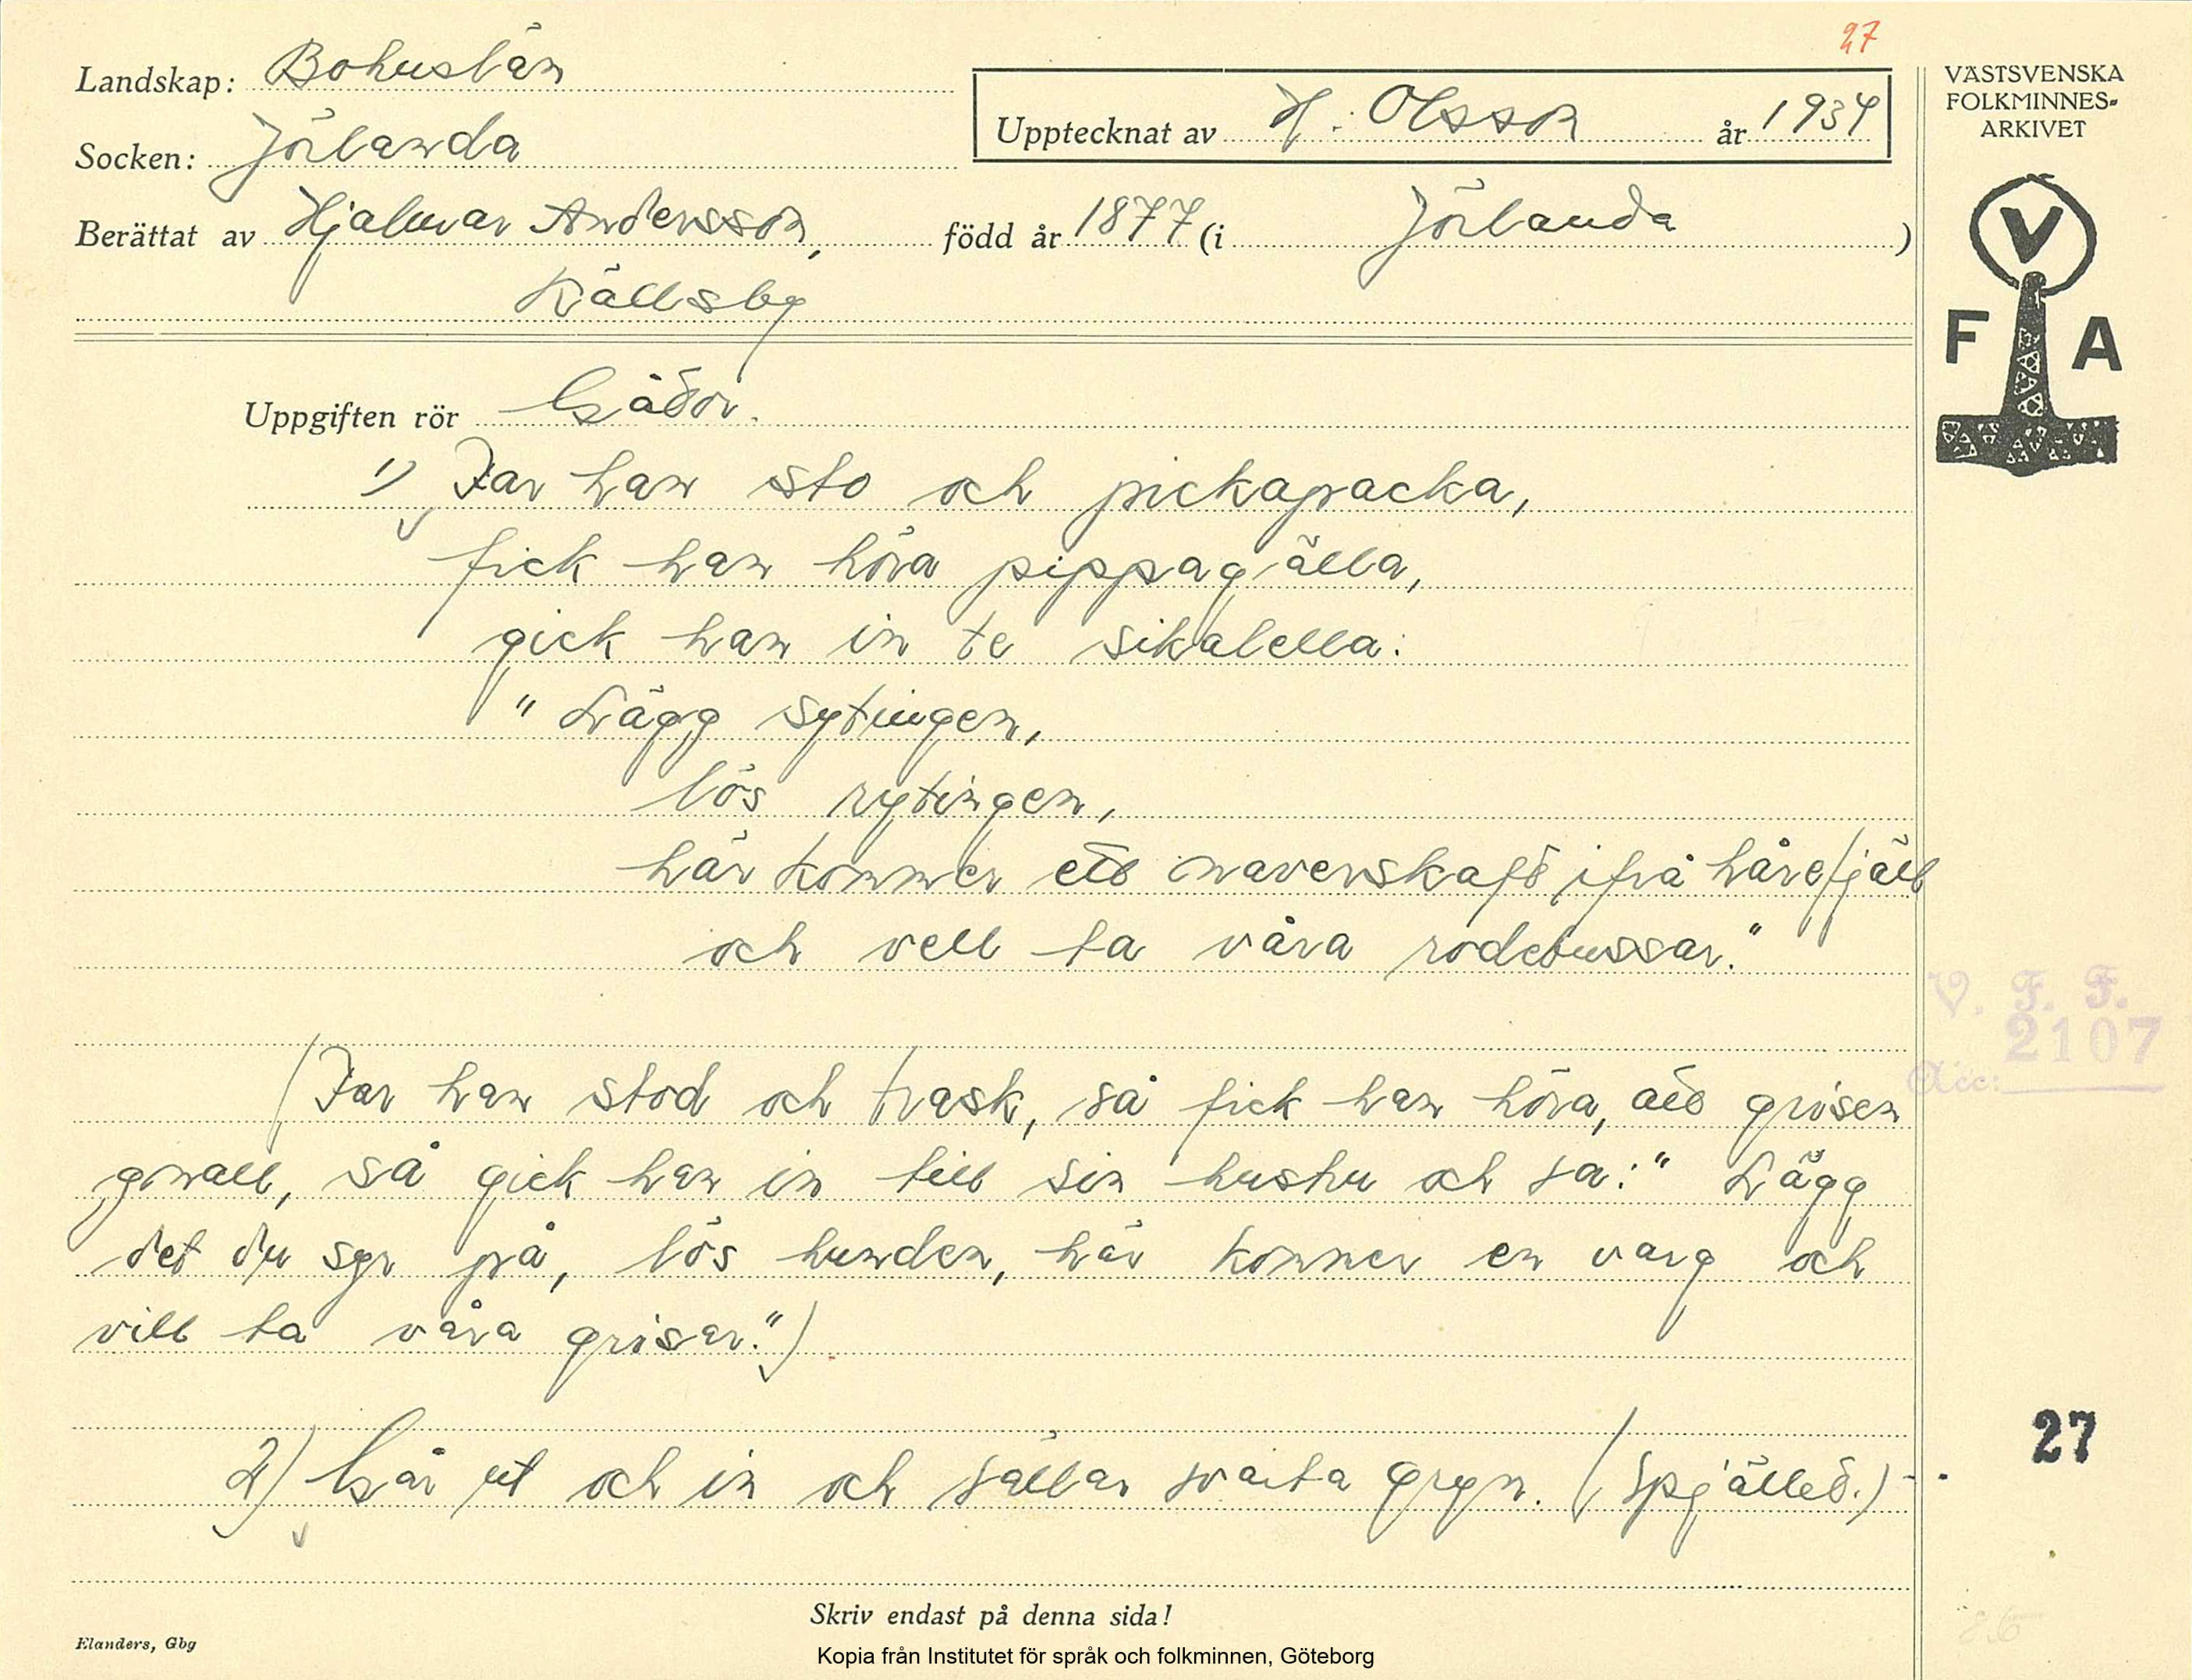 27
Landskap: Bohuslän
Socken: Jörlanda
Upptecknat av H. Olsson år 1934
VÄSTSVENSKA
FOLKMINNES-
ARKIVET
Berättat av Hjalmar Andersson, född år 1877 (i Jörlanda)
Källsby
V
F A
Uppgiften rör Gåtor.
1) Far han sto och pickapacka,
fick han höra pippagälla,
gick han in te sikalella:
" Lägg sytingen,
lös rytingen,
här kommer ett navenskaft ifrå hårefjäll
och vell ta våra rodebussar."
V. F. F.
2107
Acc:
(Far han stod och trask, så fick han höra, att grisen
gnall, så gick han in till sin hustru och sa:" Lägg
det du syr på, lös hunden, här kommer en varg och
vill ta våra grisar.")
27
2) Går ut och in och sållar svarta gryn. (Spjället.)
Skriv endast på denna sida!
Elanders, Gbg
Kopia från Institutet för språk och folkminnen, Göteborg